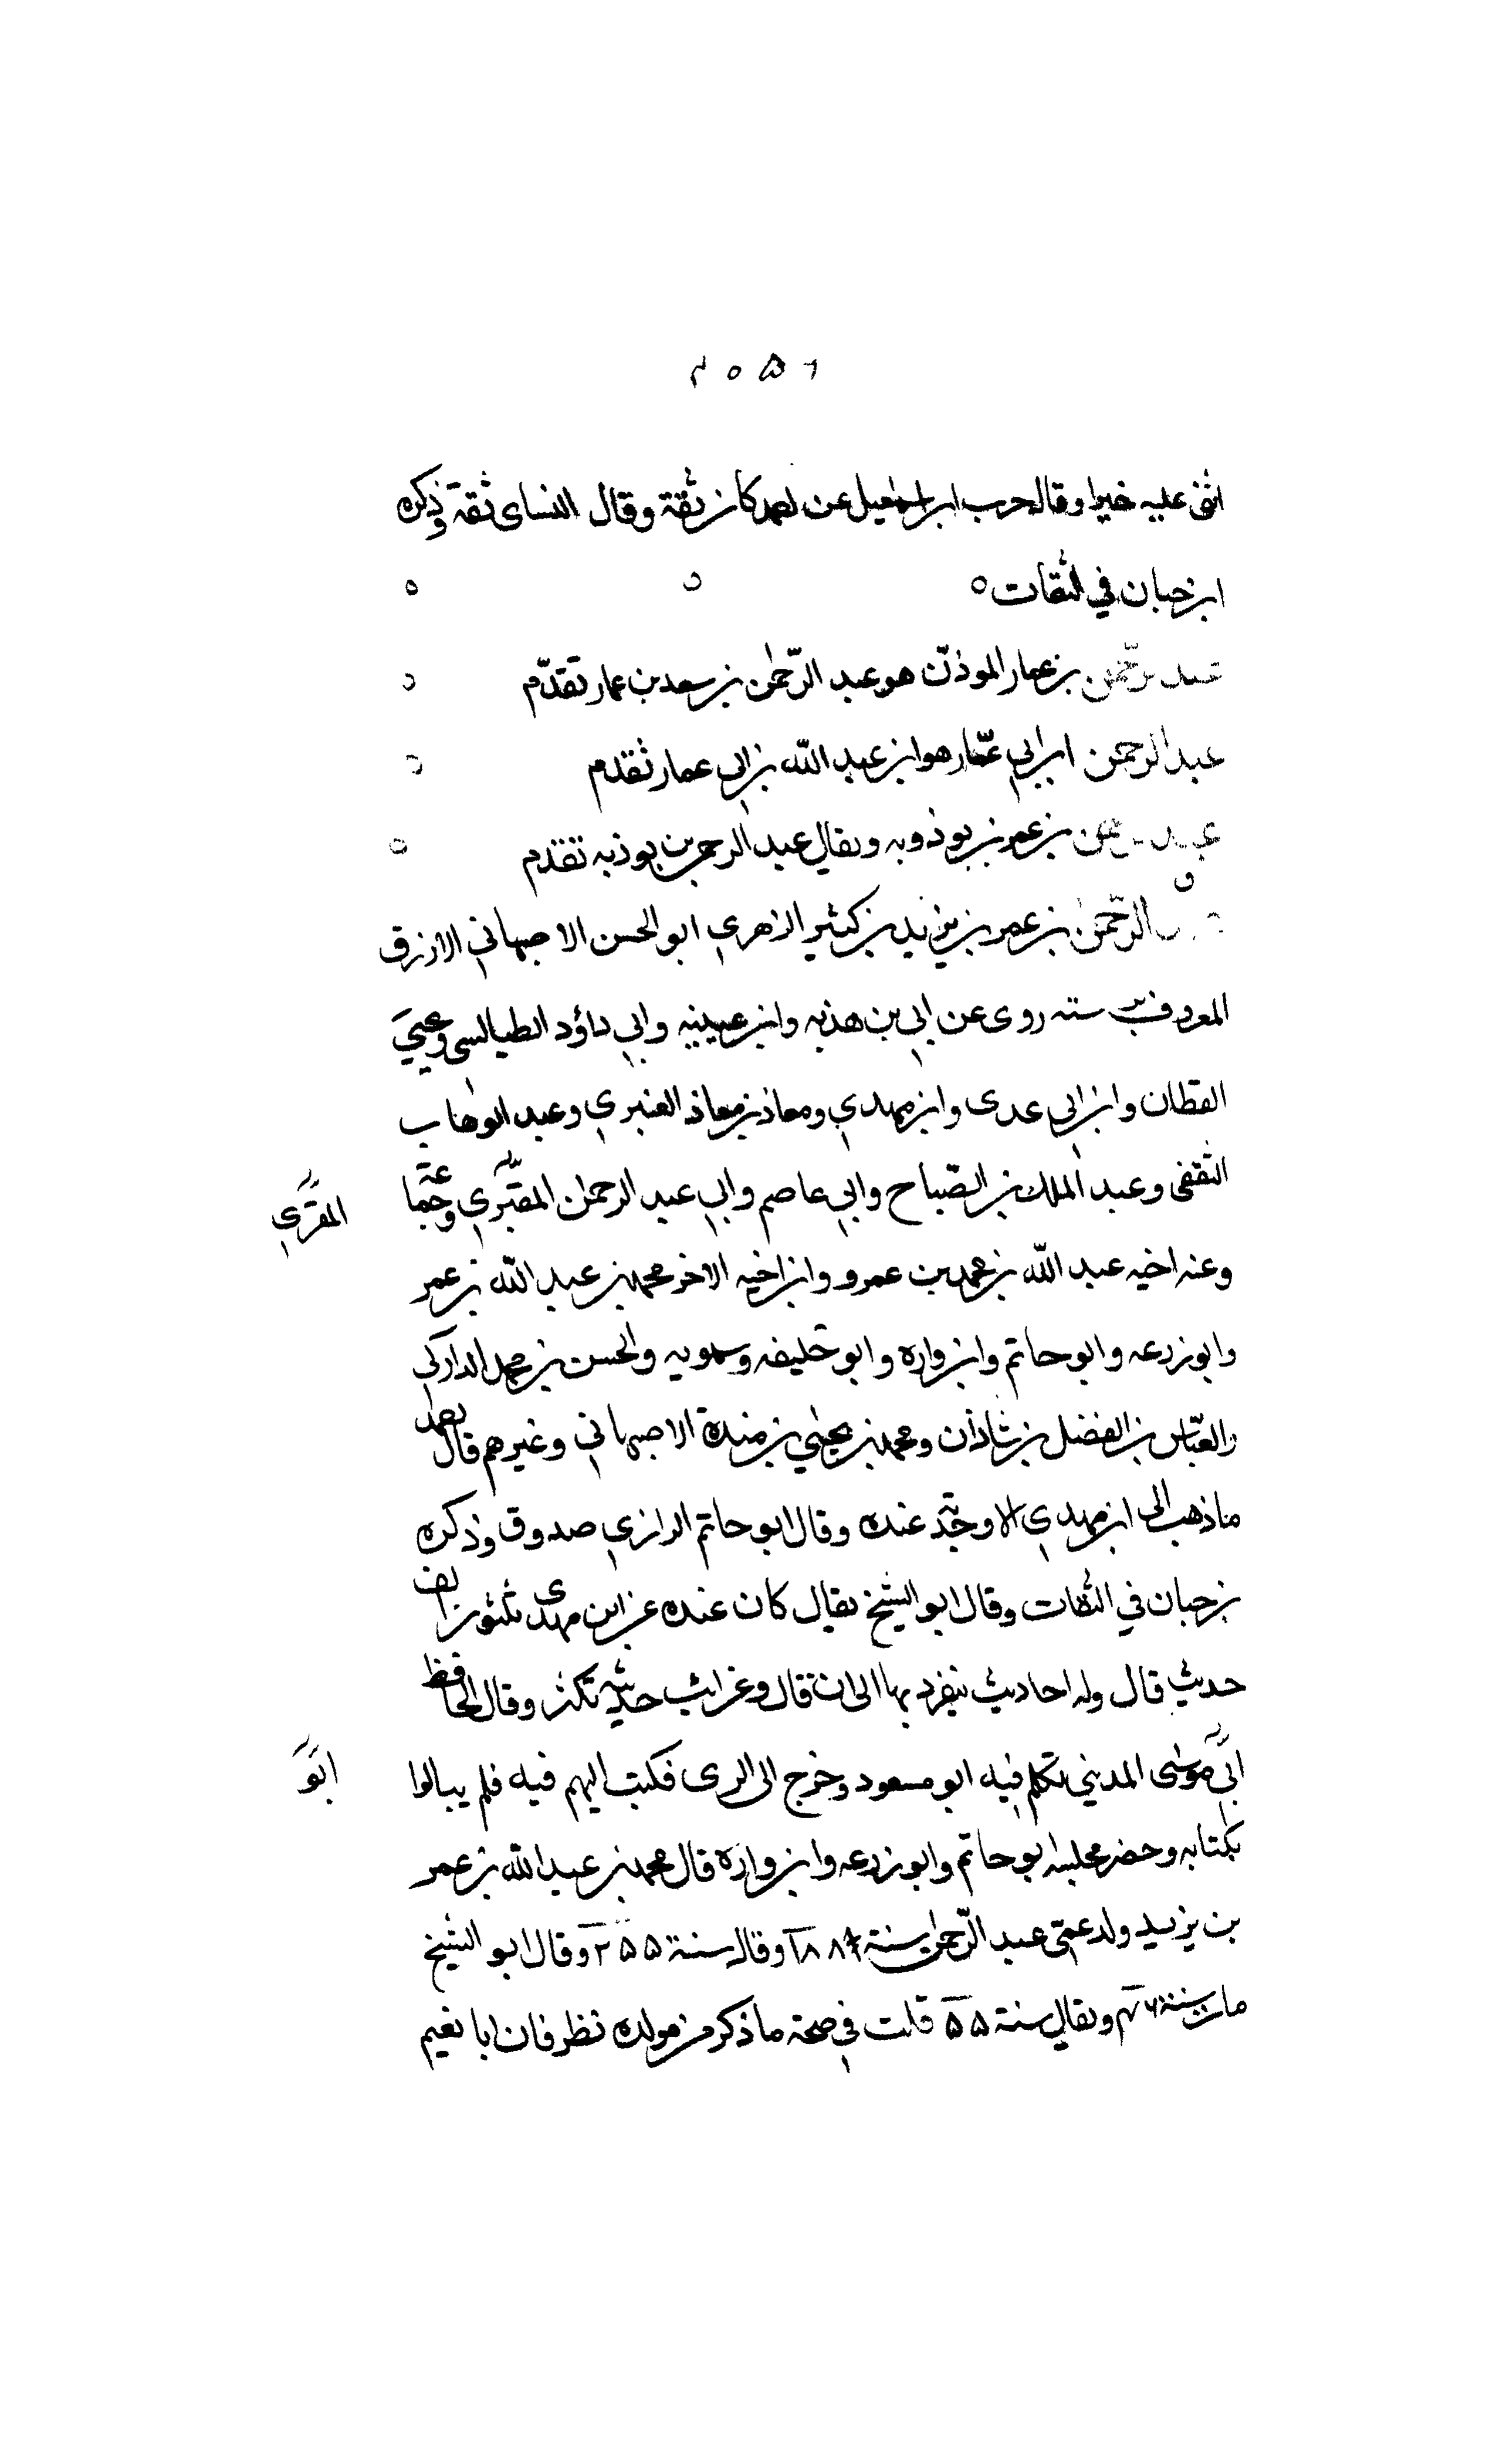 ٢٠٥٦
اثنى عليه خيرا وقال حرب ابن اسمعيل عن احمد كان ثقة وقال النساى ثقة وذكره
ابن حبان في الثقات
عبد الرحمن بن عمار الموذن هو عبد الرحمن بن سعد بن عمار تقدم
عبد الرحمن ابن ابي عمار هو ابن عبد الله بن ابى عمار تقدم
بن عمر بن بوذويه ويقال عبد الرحمن بن بوذيه تقدم
ق
الرحمن بن عمر بن يزيد بن كثير الزهري ابو الحسن الاصبهاني الازرق
المعروف برسته روى عن ابي بن هذبه وابن عيينه وابي داؤد الطيالسى ويحيي
القطان وابن ابي عدى وابن مهدي ومعاذ بن معاذ العنبري وعبد الوهاب
الثقفى وعبد الملك بن الصباح وابي عاصم وابي عبد الرحمن المقبري وجماعة
المقري
وعنه اخيه عبد الله بن محمد بن عمرو وابن اخيه الاخر محمد بن عبد الله بن عمر
وابو زرعه وابو حاتم وابن واره وابو خليفه وسمويه والحسن بن محمد الداركي
والعباس بن الفضل بن شاذان ومحمد بن يحيى بن مندة الاصبهاني وغيرهم قال احمد
ما ذهب الى ابن مهدي الا وجته عنده وقال ابو حاتم الرازي صدوق وذكره
بن حبان في الثقات وقال ابو الشيخ يقال كان عنده عن ابن مهدى ثلثون الف
حديث قال وله احاديث ينفرد بها الى ان قال وغرائب حديثه تكثر وقال الحافظ
ابي موسى المديني تكلم فيه ابو مسعود وخرج الى الرى فكتب اليهم فيه فلم يبالوا
ابو
بكتابه وحضر مجلسه ابو حاتم وابو زرعه وابن واره قال محمد بن عبد الله بن عمر
بن يزيد ولد عمى عبد الرحمن سنة ١٨٨ وقال سنة ٢٥٥ وقال ابو الشيخ
مات سنة ٤٦ ويقال سنة ٥٥ قلت في صحة ما ذكر من مولده نظر فان ابا نعيم